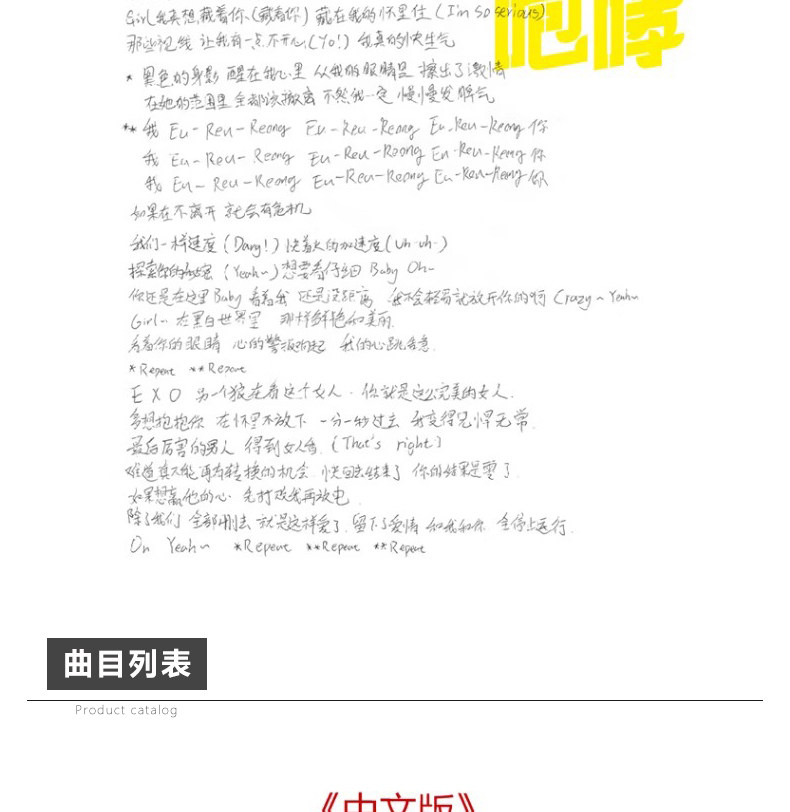 Girl 我真想藏着你 (藏着你) 藏在我的怀里住 (I'm so serious)
那些视线 让我有一点不开心 (Yo!) 我真的快生气
咆哮
* 黑色的身影 醒在我心里 从我的眼睛里 擦出了激情
在她的范围里 全部该撤离 不然我一定 慢慢发脾气
** 我 Eu-Reu-Reong Eu-Reu-Reong Eu-Reu-Reong 你
我 Eu-Reu-Reong Eu-Reu-Reong Eu-Reu-Reong 你
我 Eu-Reu-Reong Eu-Reu-Reong Eu-Reu-Reong 你
如果在不离开 就会有危机
我们一样速度 (Dang!) 快着火的加速度 (uh-uh-)
探索你的秘密 (Yeah~) 想要看仔细 Baby Oh-
你还是在这里 Baby 看着我 还是没距离 我不会轻易就放开你的呀 Crazy~ Yeah~
Girl~ 在黑白世界里 那样鲜艳和美丽
看着你的眼睛 心的警报响起 我的心跳
* Repeat ** Repeat
EXO 另一个狼在看这个女人. 你就是这么完美的女人.
多想抱抱你 在怀里不放下 一分一秒过去 我变得凶悍无常
最后厉害的男人 得到女人香. (That's right)
难道真不能再有转换的机会 快回去结束了 你的结果是零了.
如果想赢他的心 先打败我再放电
除了我们 全部删去 就是这样爱了. 留下了爱情 和我和你 全停止运行.
Oh Yeah~ *Repeat **Repeat **Repeat
曲目列表
Product catalog
《中文版》